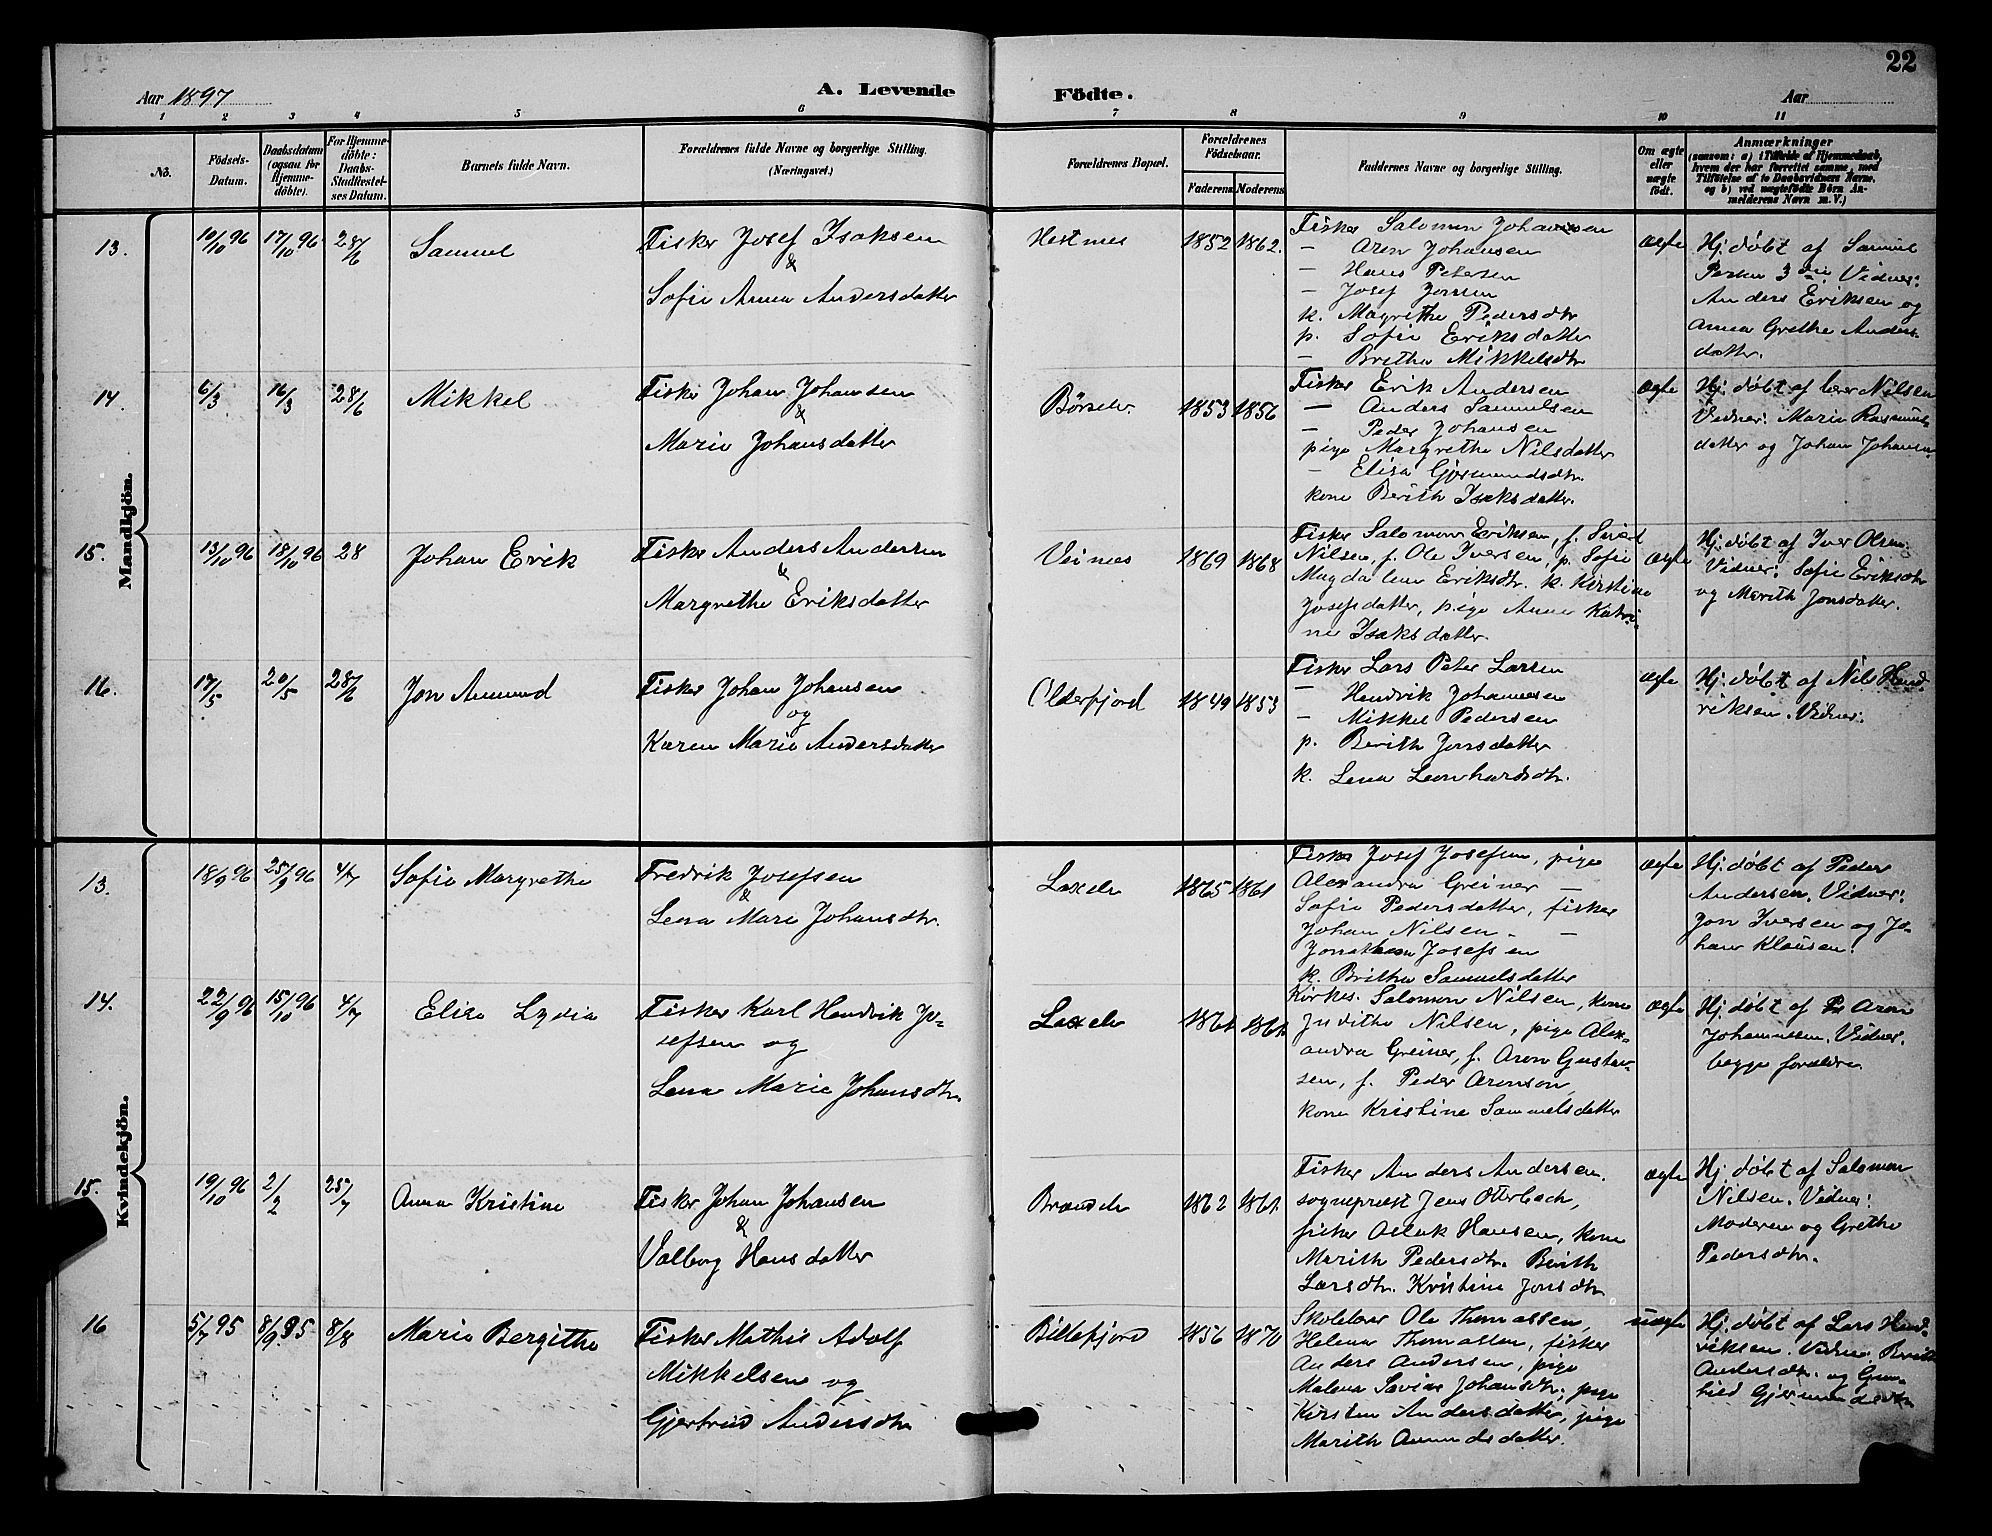 22
Aar 1897
A. Levende Födte.
Aar
1 2 3 4 5 6 7 8 9 10 11
No.
Födsels-Datum.
Daabsdatum (ogsaa for Hjemme-döbte).
For Hjemme-döbte: Daabs-Stadfæstel-ses Datum.
Barnets fulde Navn.
Forældrenes fulde Navne og borgerlige Stilling.
(Næringsvei.)
Forældrenes Bopæl.
Forældrenes Födselsaar.
Faderens Moderens
Faddernes Navne og borgerlige Stilling.
Om ægte eller uægte födt.
Anmærkninger
(saasom: a) i Tilfælde af Hjemmedaab,
hvem der har forrettet samme, med
Tilföielse af to Daabsvidners Navne,
og b) ved uægtefödte Börn An-
melderens Navn m. V.)
Mandkjön.
13. 10/10 96 17/10 96 28/6 Samuel
Fisker Josef Isaksen
&
Sofie Anna Andersdatter
Hestnes 1852 1862.
Fisker Salomon Johansen
— Aron Johansen
— Hans Petersen
— Josef Jonsen
k. Magrethe Pedersdtr
p. Sofie Eriksdatter
— Brithe Mikkelsdtr
ægte
Hj. døbt af Samuel
Persen Vidner:
Anders Eriksen og
Anna Grethe Anders
datter.
14. 6/3 16/3 28/6 Mikkel
Fisker Johan Johansen
&
Marie Johansdatter
Børselv. 1853 1856
Fisker Erik Andersen
— Anders Samuelsen
— Peder Johansen
pige Margrethe Nilsdatter
— Elisa Gjermundsdtr.
kone Berith Isaksdatter.
ægte
Hj. døbt af Nilsen
Vidner: Marie Rasmus
datter og Johan Johansen
15. 13/10 96 18/10 96 28 Johan Erik
Fisker Anders Andersen
&
Margrethe Eriksdatter
Veines 1869 1868
Fisker Salomon Eriksen, f.
Nilsen, f. Ole Iversen, p. Sofie
Magdalene Eriksdtr. k. Kirstine
Josefsdatter, pige Anna Katri-
ne Isaksdatter.
ægte
Hj. døbt af Iver Olsen.
Vidner: Sofie Eriksdtr
og Marith Jonsdatter.
16. 17/5 20/5 28/6 Jon Amund
Fisker Johan Johansen
og
Karen Marie Andersdatter
Olderfjord 1849 1853
Fisker Lars Peter Larsen
— Hendrik Johannesen
— Mikkel Pedersen
p. Berith Jonsdatter
k. Lena Leonhardsdtr.
ægte
Hj. døbt af Nils Hend-
riksen. Vidner:
Kvindekjön.
13. 18/9 96 25/9 96 4/7 Sofie Margrethe
Fredrik Josefsen
&
Lena Marie Johansdtr.
Laxelv 1865 1861
Fisker Josef Josefsen, pige
Alexandra Greiner —
Sofie Pedersdatter, fisker
Johan Nilsen - —
Jonathan Josefsen
k. Brithe Samuelsdatter
ægte
Hj. døbt af Peder
Andersen. Vidner:
Jon Iversen og Jo-
han Klausen.
14. 22/9 96 15/10 96 4/7 Elisa Lydia
Fisker Karl Hendrik Jo-
sefsen og
Lena Marie Johansdtr.
Laxelv 1861 1861
Kirkes. Salomon Nilsen, kone
Judithe Nilsen, pige Alex-
andra Greiner, f. Aron Gustav-
sen, f. Peder Aronson,
kone Kristine Sammelsdatter
ægte
Hj. døbt af Aron
Johannesen. Vidner.
begge forældre
15. 19/10 96 2/2 25/7 Anna Kristine
Fisker Johan Johansen
&
Valborg Hansdatter
Brændelv 1862 1861
Fisker Anders Andersen.
sogneprest Jens Otterbech,
fisker Aslak Hansen, kone
Marith Pedersdtr. Berith
Larsdtr. Kristine Jonsdtr
ægte
Hj. døbt af Salomon
Nilsen. Vidner:
Moderen og Grethe
Pedersdtr.
16 5/7 95 8/9 95 8/8 Marie Bergithe
Fisker Mathis Adolf
Mikkelsen og
Gjertrud Andersdtr
Billefjord 1856 1870
Skolelærer Ole Thomassen,
Helena Thomassen, fisker
Anders Andersen, pige
Malena Johansdtr; pige
Kirsten Andersdatter, pige
Marith Amundsdatter.
uægte
Hj. døbt af Lars Hend-
riksen. Vidner. Berith
Andersdtr. og Gun-
hild Gjermundsdtr